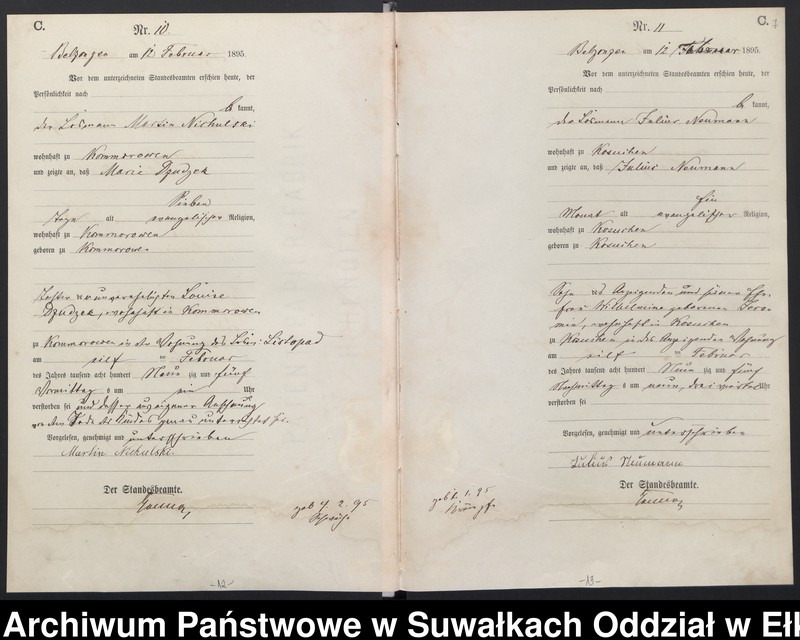 C.
Nr. 10.
Belzonzen am 12 Februar 1895.
Vor dem unterzeichneten Standesbeamten erschien heute, der
Persönlichkeit nach
kannt,
der Losmann Martin Nichulski
wohnhaft zu Kommorowen
und zeigte an, daß Marie Dzudzek
Sieben
Tage alt evangelischer Religion,
wohnhaft zu Kommorowen
geboren zu Kommorowen
Tochter der unverehelichten Louise
Dzudzek, wohnhaft in Kommorowen
zu Kommorowen in der Wohnung des Listopad
am elf Februar
des Jahres tausend acht hundert Neun zig und fünf
Vormittag s um ein Uhr
verstorben sei und daß er aus eigener
von dem Tode des Kindes genau unterrichtet sei.
Vorgelesen, genehmigt und unterschrieben
Martin Nichulski
Der Standesbeamte.
geb 4. 2. 95
-12-
C. 7
Nr. 11
Belzonzen am 12 Februar 1895.
Vor dem unterzeichneten Standesbeamten erschien heute, der
Persönlichkeit nach
kannt,
der Losmann Julius Neumann
wohnhaft zu Kosuchen
und zeigte an, daß Julius Neumann
Ein
Monat alt evangelischer Religion,
wohnhaft zu Kosuchen
geboren zu Kosuchen
Sohn des Anzeigenden und seiner Ehe-
frau Wilhelmine geborenen
wohnhaft in Kosuchen
zu Kosuchen in des Anzeigenden Wohnung
am elf Februar
des Jahres tausend acht hundert Neun zig und fünf
Nachmittag s um neun, drei viertel Uhr
verstorben sei
Vorgelesen, genehmigt und unterschrieben
Julius Neumann
Der Standesbeamte.
1. 95
-13-
Archiwum Państwowe w Suwałkach Oddział w Eł